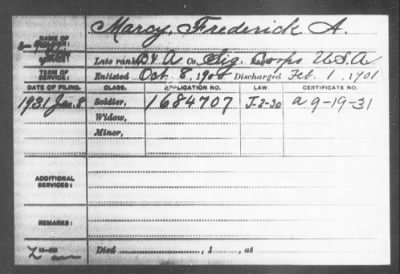 Marcy, Frederick A.
NAME OF SOLDIER:
SERVICE:
Late rank, Co. Sig. Corps U.S.A
TERM OF SERVICE:
Enlisted Oct. 8, 1900 Discharged Feb. 1, 1901
DATE OF FILING. CLASS. APPLICATION NO. LAW. CERTIFICATE NO.
1931 Jan. 8 Soldier, 1684707 J-2-30 a 9-19-31
Widow,
Minor,
ADDITIONAL SERVICES:
REMARKS:
Died , 1 , at